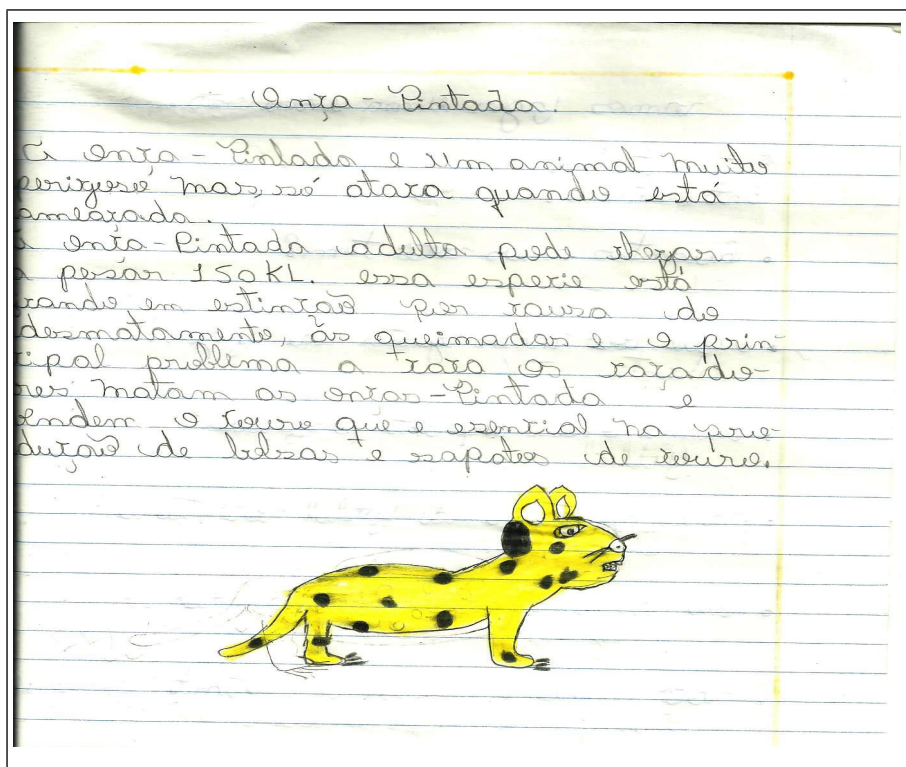 Onça-Pintada
A Onça-Pintada e um animal muito
perigoso mas, só ataca quando está
ameaçada.
a onça-Pintada adulta pode chegar
a pesar 150KL. essa especie está
rando em estinção por causa do
desmatamento, ás queimadas e o prin-
cipal problema a caça os caçado-
res matam as onças-Pintada e
endem o couro que e esencial na pro-
dução de bolsas e sapatos de couro.